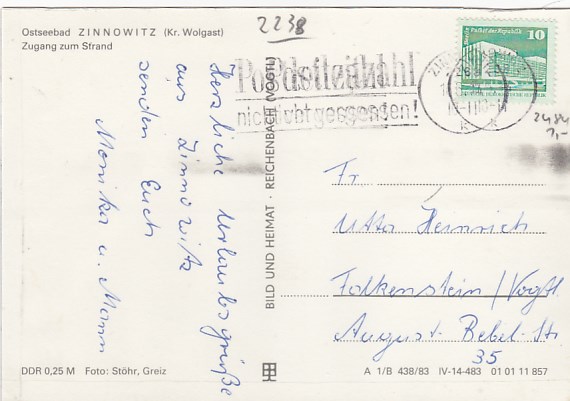 Ostseebad ZINNOWITZ (Kr. Wolgast)
Zugang zum Strand
2238
Herzliche Urlaubsgrüße
aus Zinnowitz
senden Euch
Monika u. Mann
BILD UND HEIMAT · REICHENBACH (VOGTL)
Palast der Republik
10
nicht vergessen!
2484
1,-
Fr.
Utta Heinrich
Falkenstein/Vogtl.
August-Bebel-Str
35
DDR 0,25 M Foto: Stöhr, Greiz
A 1/B 438/83 IV-14-483 01 01 11 857